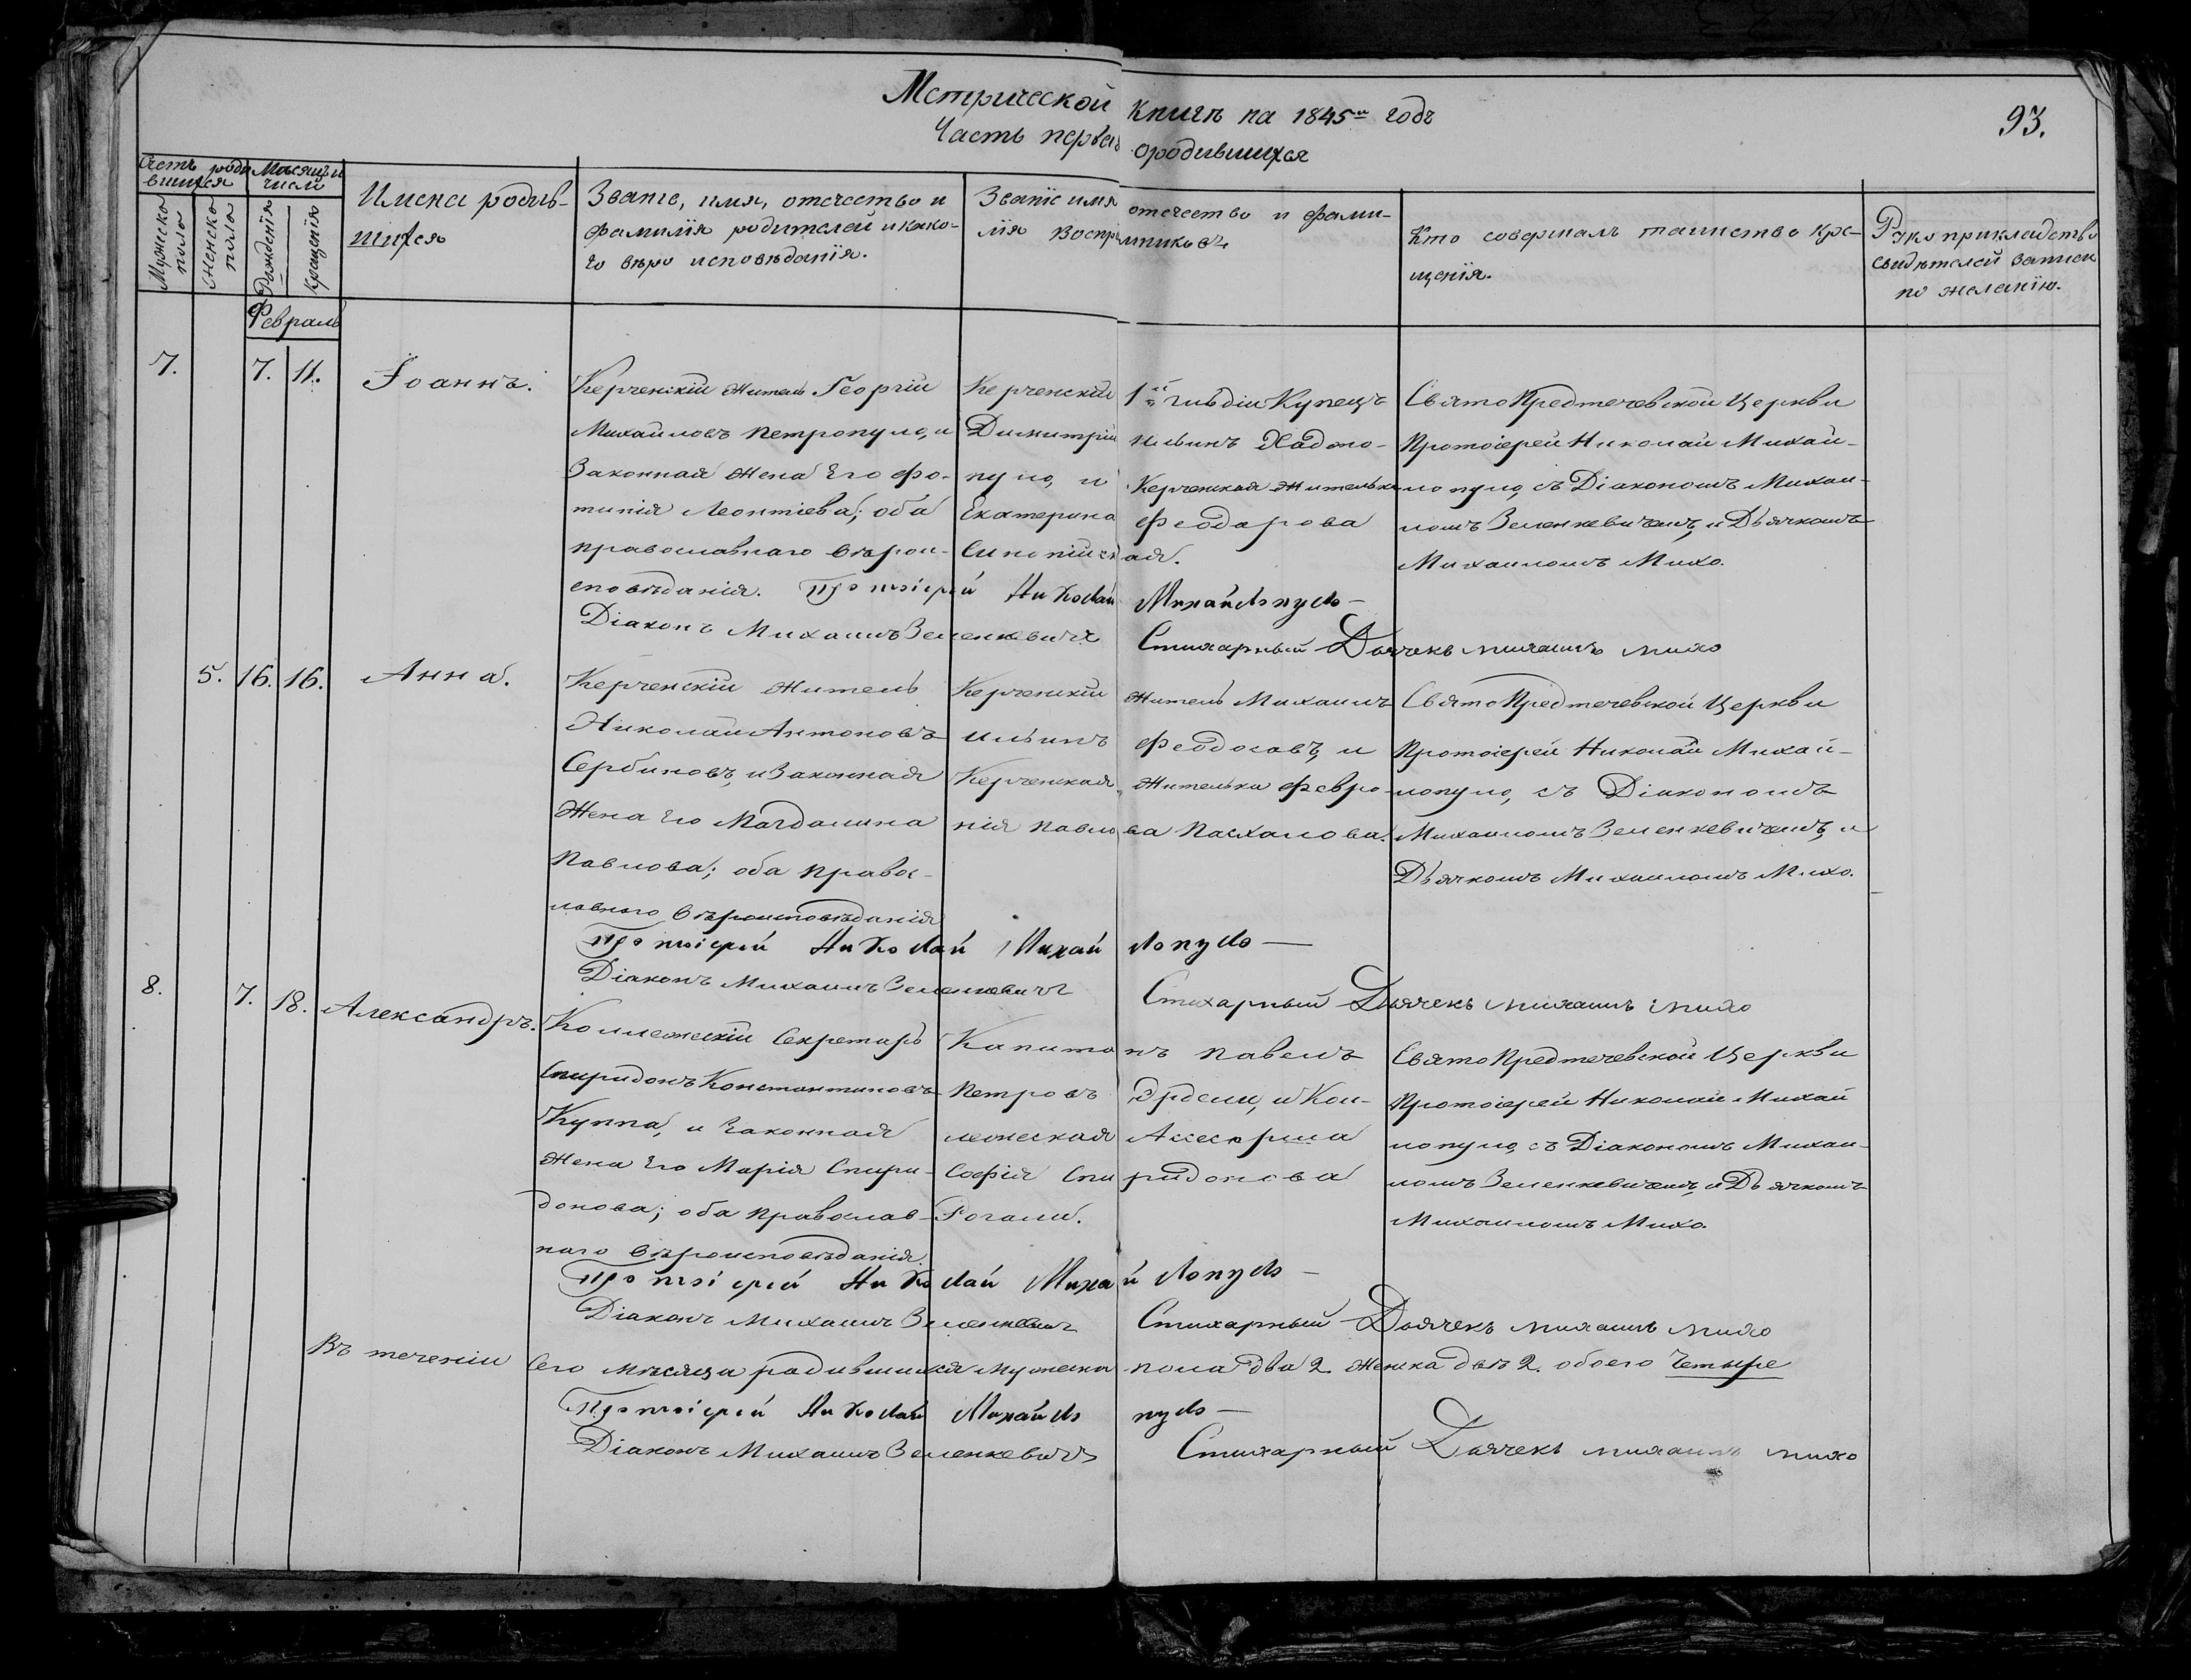 Метрической книги на 1845й годъ
93.
Часть первая о родившихся
Счетъ роди
вшихся
Мѣсяцъ и
число
Мужеска
пола
Женска
пола
Рожденія
Крещенія
Имена родив-
шихся
Званіе, имя, отечество и
фамилія родителей и како-
го вѣроисповѣданія.
Званіе имя отечество и фами-
лія воспріемниковъ
Кто совершалъ таинство кре-
щенія.
Рукоприкладство
свидѣтелей записи
по желанію.
Февраль
7.
7.
11.
Іоаннъ.
Керченскій житель Георгій
Михаиловъ Петропуло, и
Законная жена Его Фо-
тинія Леонтіева; оба
православнаго вѣрои-
сповѣданія.
Керченскій 1й гильдіи Купецъ
Димитрій Ильинъ Хаджо-
пуло, и Керченская жителька
Екатерина Феодорова
Синопійская.
СвятоПредтечевской Церкви
Протоіерей Николай Михай-
лопуло, съ Діакономъ Михаи-
ломъ Зеленкевичемъ, и Дьячкомъ
Михаиломъ Михо.
Протоіерей Николай Михайлопуло
Діаконъ Михаилъ Зеленкевичъ
Стихарный Дьячекъ Михаилъ Михо
5.
16.
16.
Анна.
Керченскій житель
Николай Антоновъ
Сербиновъ, и Законная
Жена Его Магдалина
Павлова; оба правос-
лавнаго вѣроисповѣданія
Керченскій житель Михаилъ
Ильинъ Феодосавъ, и
Керченская жителька Февро-
нія Павлова Пасхалова.
СвятоПредтечевской Церкви
Протоіерей Николай Михай-
лопуло, съ Діакономъ
Михаиломъ Зеленкевичемъ, и
Дьячкомъ Михаиломъ Михо.
Протоіерей Николай Михайлопуло
Діаконъ Михаилъ Зеленкевичъ
Стихарный Дьячекъ Михаилъ Михо
8.
7.
18.
Александръ.
Коллежскій Секретарь
Спиридонъ Константиновъ
Куппа, и Законная
Жена Его Марія Спири-
донова; оба православ-
наго вѣроисповѣданія.
Капитанъ Павелъ
Петровъ Эрдели, и Кол-
лежская Ассесорша
Софія Спиридонова
Рогали.
СвятоПредтечевской Церкви
Протоіерей Николай Михай
лопуло, съ Діакономъ Михаи-
ломъ Зеленкевичемъ, и Дьячкомъ
Михаиломъ Михо.
Протоіерей Николай Михайлопуло
Діаконъ Михаилъ Зеленкевичъ
Стихарный Дьячекъ Михаилъ Михо
Въ теченіи сего мѣсяца родившихся мужеска пола два 2. женска двѣ 2. обоего четыре
Протоіерей Николай Михайлопуло
Діаконъ Михаилъ Зеленкевичъ
Стихарный Дьячекъ Михаилъ Михо